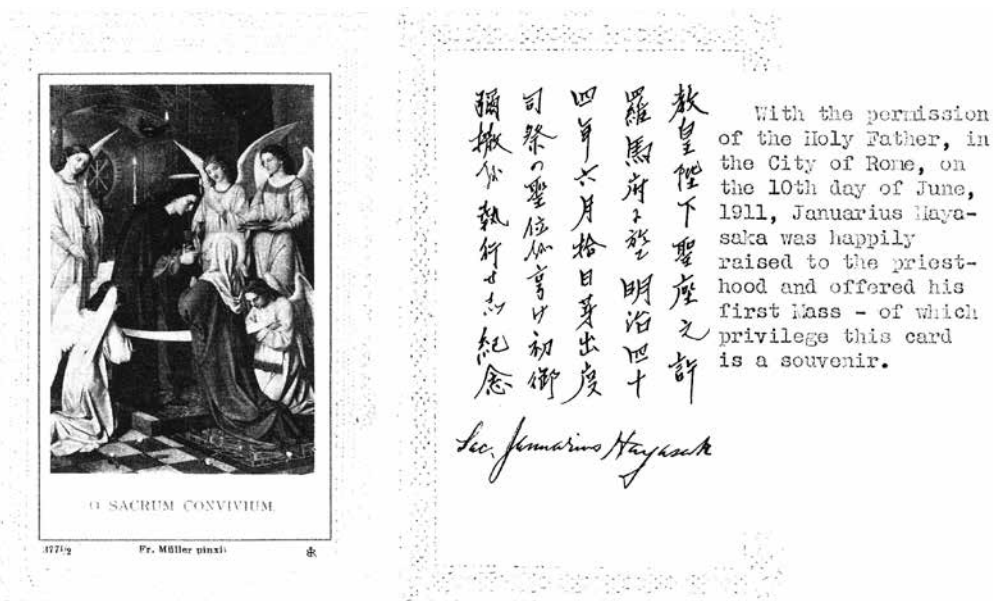 O SACRUM CONVIVIUM
377 1/2
Fr. Müller pinxit
教皇陛下聖座之許
羅馬府に於て明治四十
四年六月拾日芽出度
司祭の聖位を享け初御
彌撒を執行せし紀念
Sac. Januarius Hayasaka
With the permission
of the Holy Father, in
the City of Rome, on
the 10th day of June,
1911, Januarius Haya-
saka was happily
raised to the priest-
hood and offered his
first Mass - of which
privilege this card
is a souvenir.